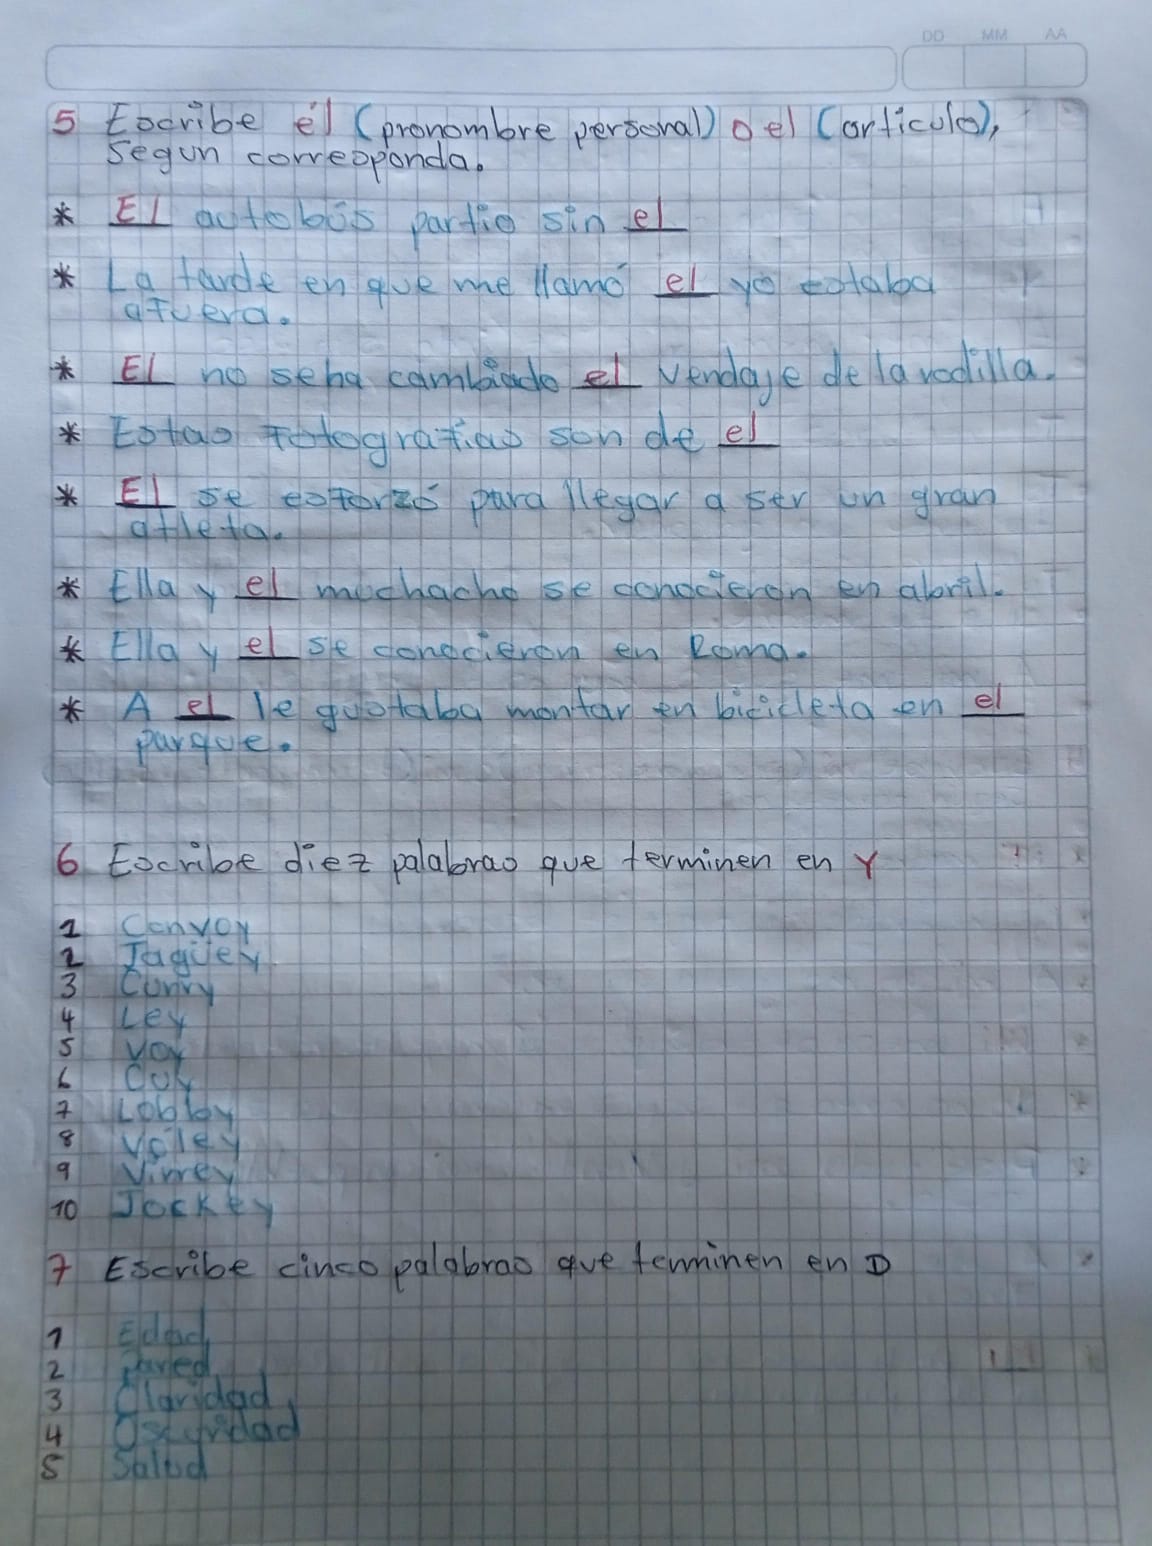 DD MM AA
5 Escribe él (pronombre personal) o el (artículo),
segun corresponda.
* El autobús partio sin el
* La tarde en que me llamó el yo estaba
afuera.
* El no se ha cambiado el vendaje de la rodilla.
* Estas fotografias son de el
* El se esforzó para llegar a ser un gran
atleta.
* Ella y el muchacho se conocieron en abril.
* Ella y el se conocieron en Roma.
* A el le gustaba montar en bicicleta en el
parque.
6 Escribe diez palabras que terminen en Y
1 Convoy
2 Jagüey
3 Curry
4 Ley
5 Voy
6 Cuy
7 Lobby
8 Voley
9 Virrey
10 Jockey
7 Escribe cinco palabras que terminen en D
1 Edad
2 Pared
3 Claridad
4 Oscuridad
5 Salud